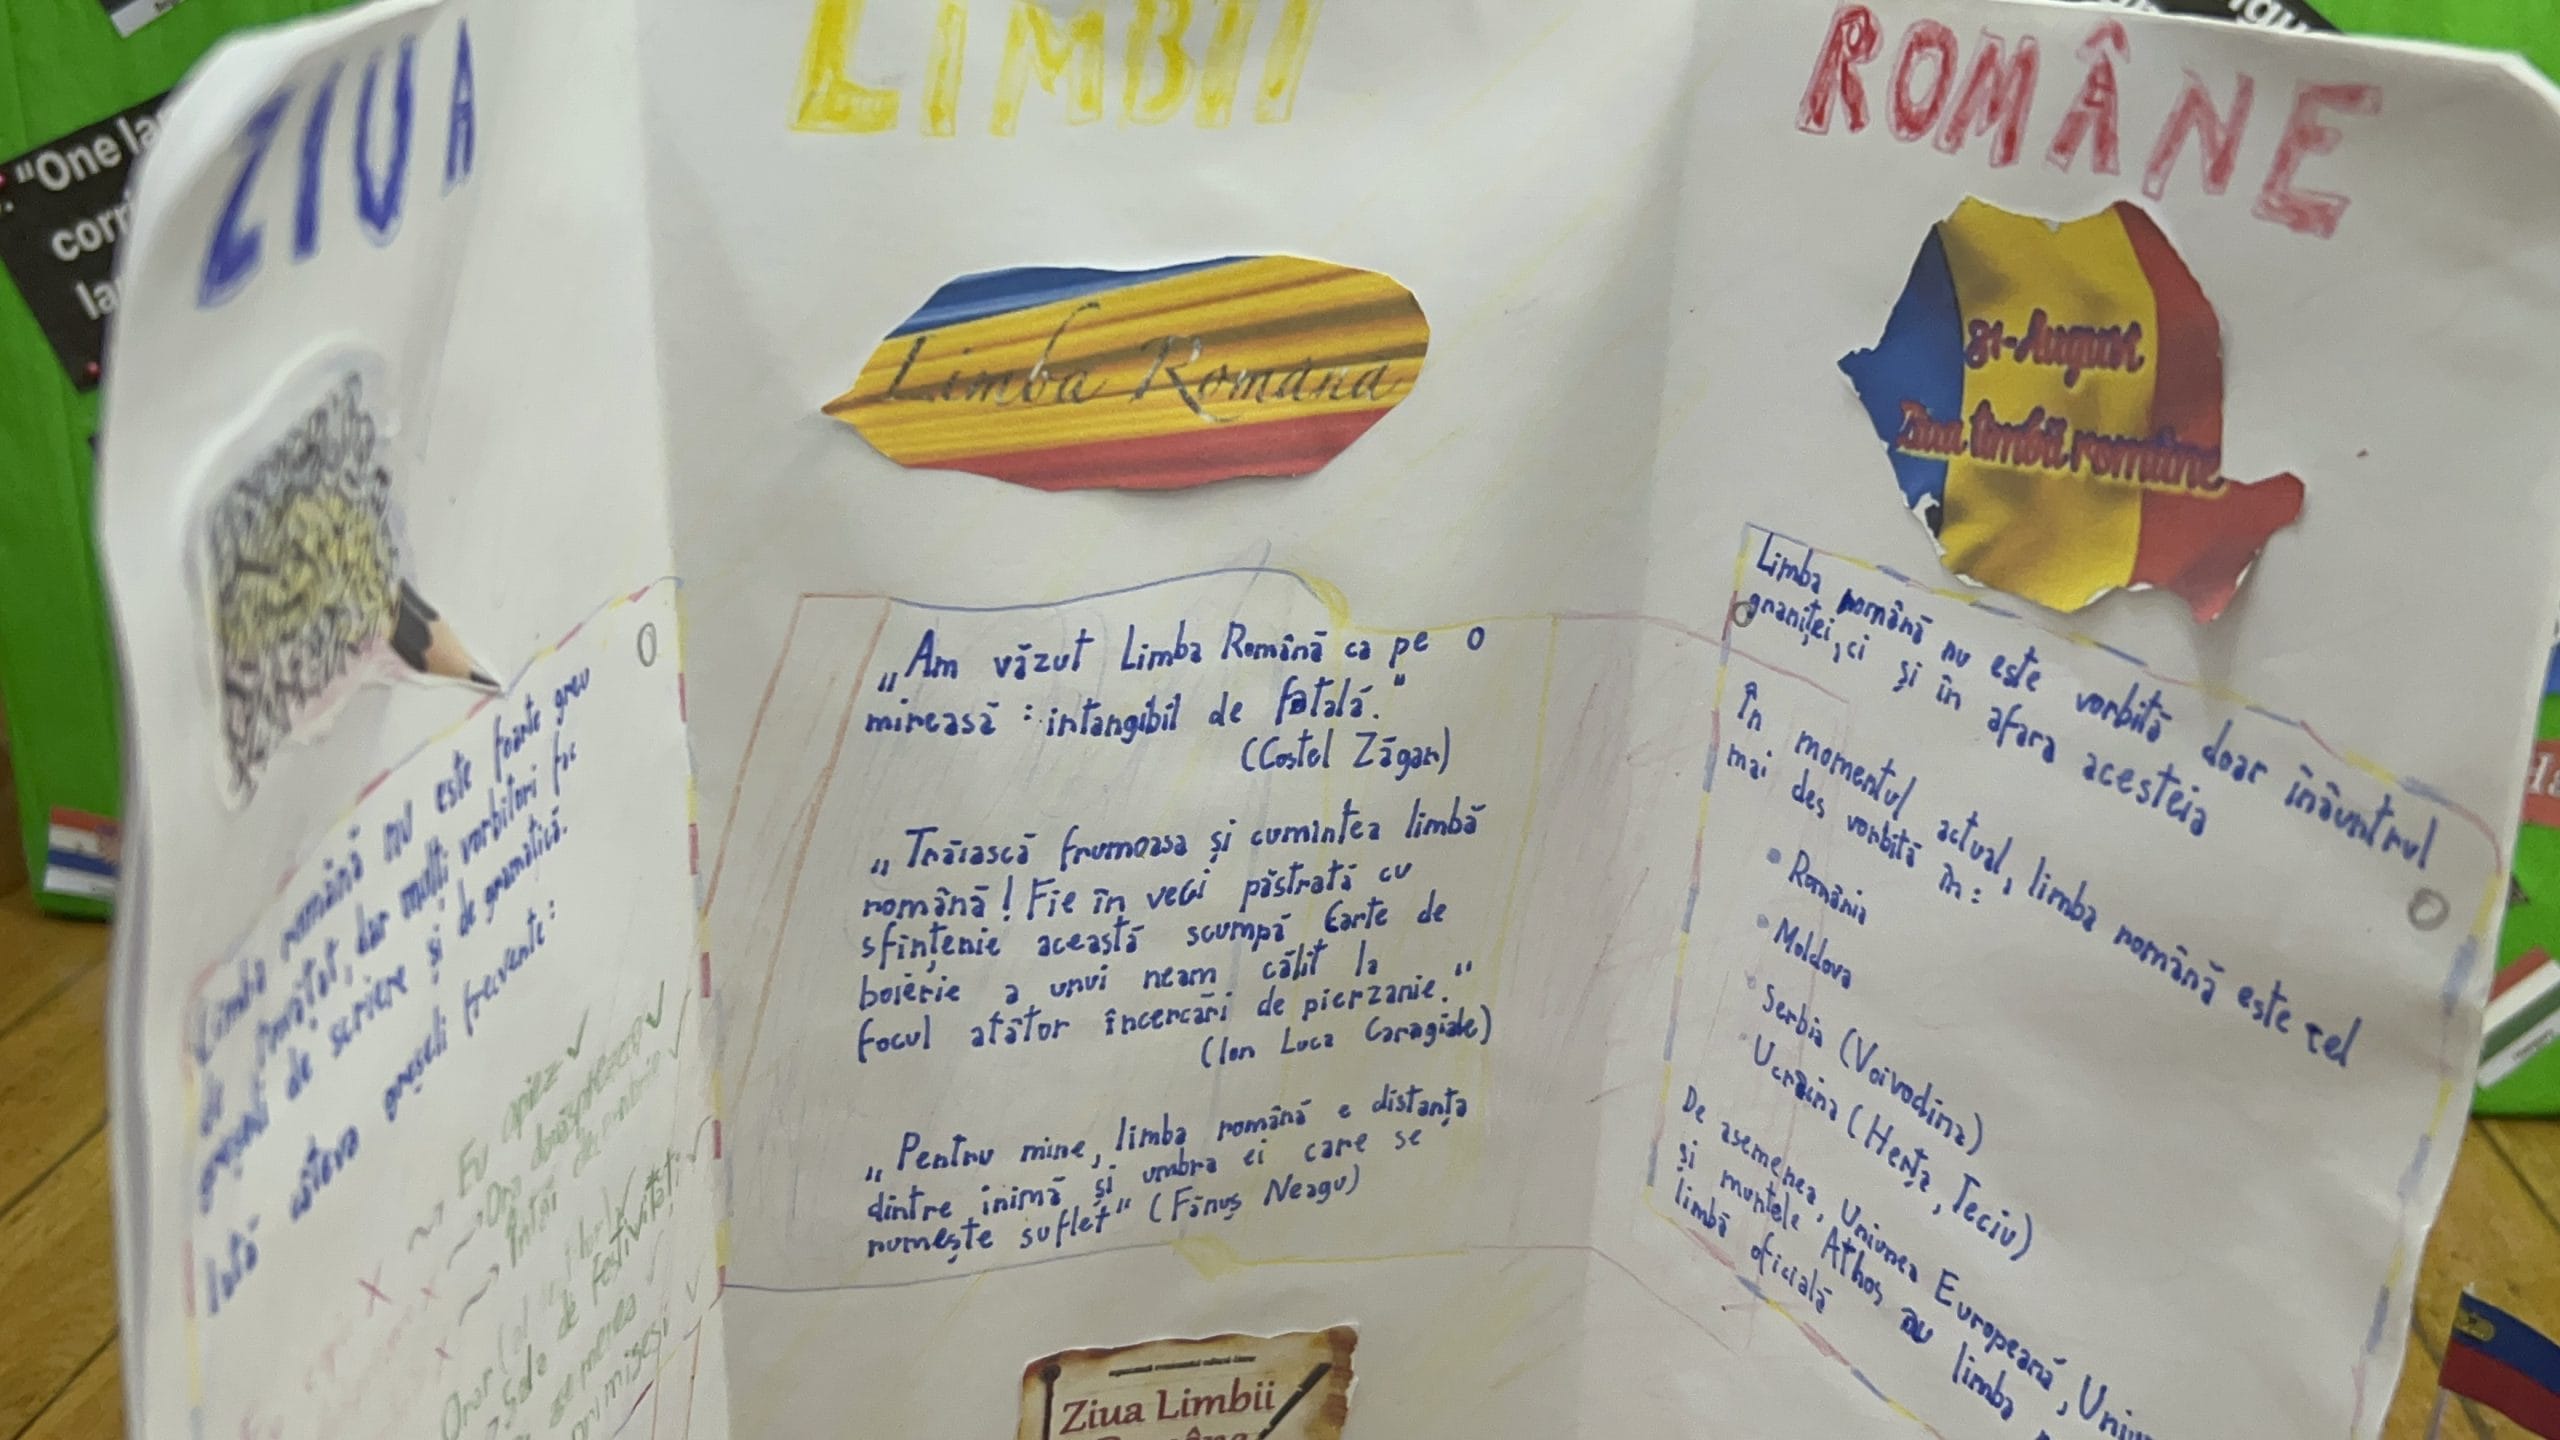 "One
ZIUA
LIMBII
ROMÂNE
Limba Română
31-August
Ziua limbii române
Limba română nu este foarte greu
de învățat, dar mulți vorbitori fac
greșeli de scriere și de gramatică.
Iată câteva greșeli frecvente:
X → Eu creez ✓
→ Ora douăsprezece ✓
→ Întâi decembrie ✓
Sala de festivități ✓
asemenea ✓
„Am văzut Limba Română ca pe o
mireasă: intangibil de fatală."
(Costel Zăgan)
„Trăiască frumoasa și cumintea limbă
română! Fie în veci păstrată cu
sfințenie această scumpă Carte de
boierie a unui neam călit la
focul atâtor încercări de pierzanie."
(Ion Luca Caragiale)
„Pentru mine, limba română e distanța
dintre inimă și umbra ei care se
numește suflet" (Fănuș Neagu)
Ziua Limbii
Limba română nu este vorbită doar înăuntrul
graniței, ci și în afara acesteia
În momentul actual, limba română este cel
mai des vorbită în:
• România
• Moldova
• Serbia (Voivodina)
• Ucraina (Herța, Teciu)
De asemenea, Uniunea Europeană,
și muntele Athos au limba
limbă oficială